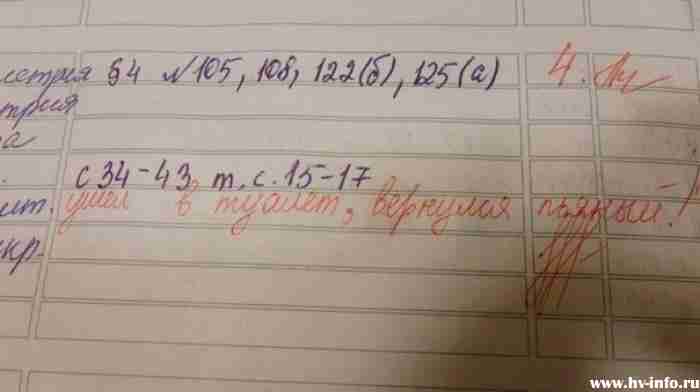 метрия §4 №105, 108, 122(б), 125(а) 4.
трия
а
с 34-43 т. с. 15-17
ит. ушел в туалет, вернулся пьяный!
кр.
www.hv-info.ru